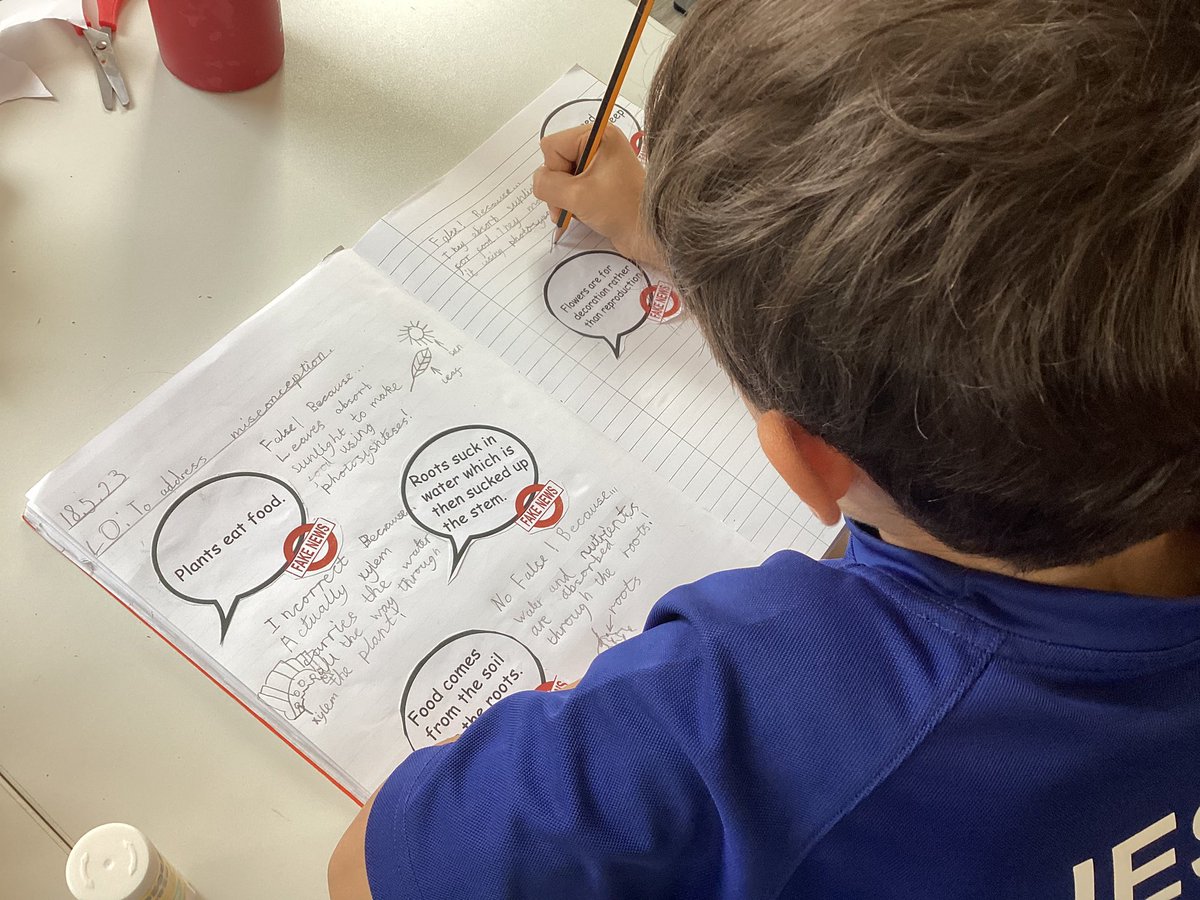 18.5.23
LO: To address misconception.
Plants eat food.
FAKE NEWS
False! Because...
Leaves absorb
sunlight to make
using
photosyshteses!
sun
leaf
Roots suck in
water which is
then sucked up
the stem.
FAKE NEWS
Incorrect Because
Actually xylem
carries the water
all the way through
the plant!
xylem
No False! Because...
water and nutrients
are absorbed
through the roots!
roots
Food comes
from the soil
the roots.
NEWS
False! Because...
they absorb
not food they
it using
Flowers are for
decoration rather
than reproduction
FAKE NEWS
JES